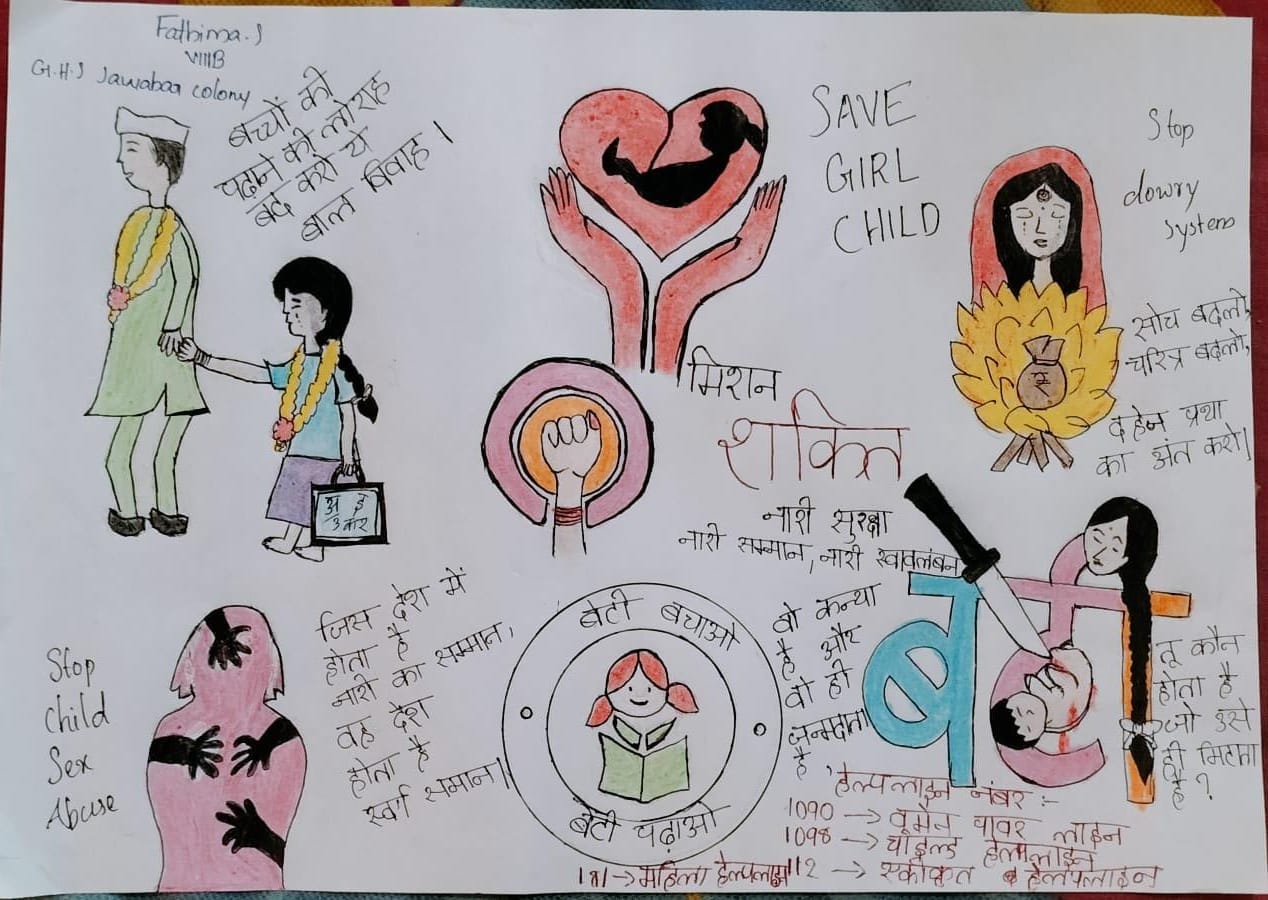 Fathima.S
VIIIB
G.H.S Jawahar colony
बच्चों को
पढ़ाने की लो राह
बंद करो ये
बाल विवाह ।
SAVE
GIRL
CHILD
Stop
dowry
system
सोच बदलो,
चरित्र बदलो,
दहेज प्रथा
का अंत करो।
मिशन
शक्ति
नारी सुरक्षा
नारी सम्मान, नारी स्वावलंबन
अ इ
उ
Stop
Child
Sex
Abuse
जिस देश में
होता है
नारी का सम्मान,
वह देश
होता है
स्वर्ग समान।
बेटी बचाओ
बेटी पढ़ाओ
वो कन्या
है और
वो ही
जन्मदाता
है,
बेटी
तू कौन
होता है
जो उसे
ही मिटाता
है?
हेल्पलाइन नंबर :-
1090 → वूमेन पावर लाइन
1098 → चाइल्ड हेल्पलाइन
181 → महिला हेल्पलाइन
112 → एकीकृत हेल्पलाइन